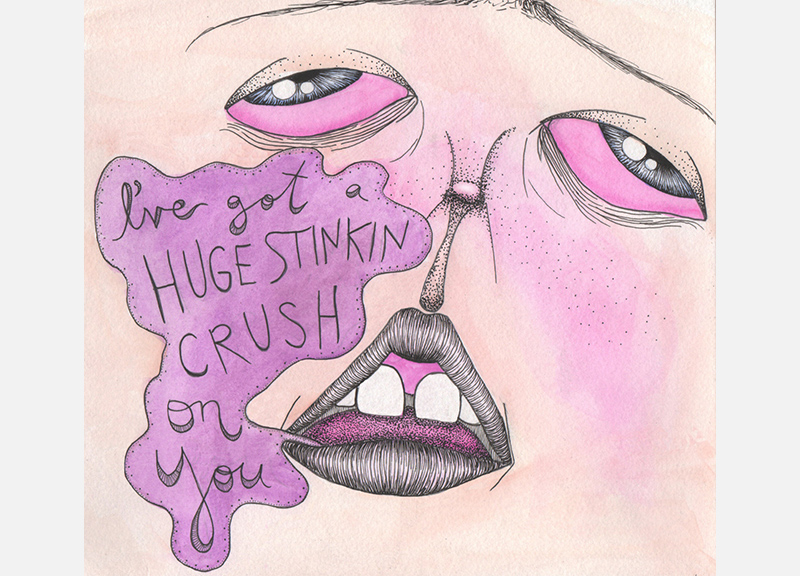 I've got a
HUGE STINKIN
CRUSH
on
you